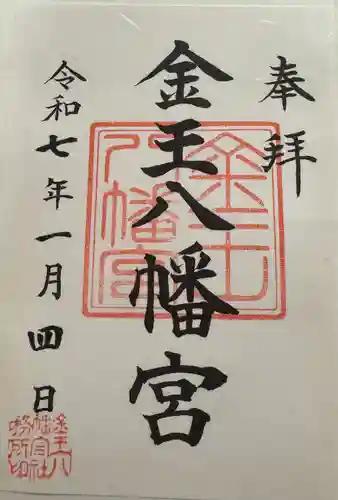 奉拝
金王八幡宮
令和七年一月四日
金王八幡宮
金王八幡宮社務所印